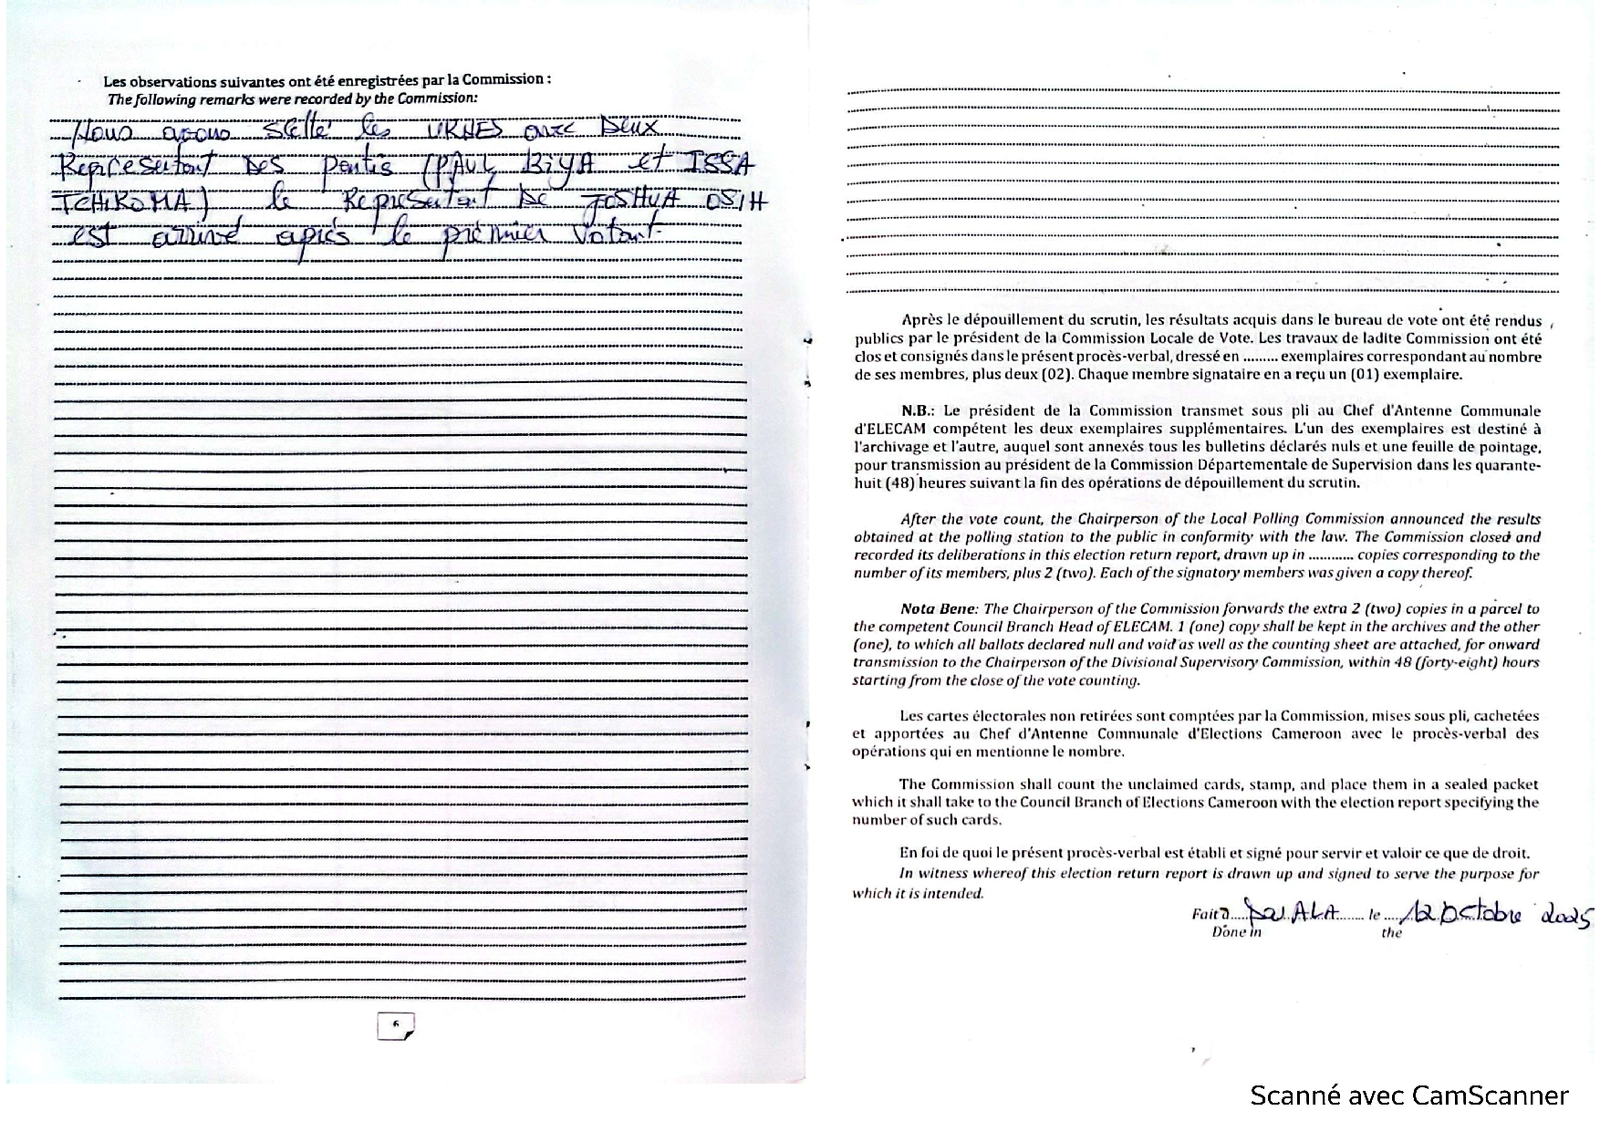 Les observations suivantes ont été enregistrées par la Commission :
The following remarks were recorded by the Commission:
Nous avons scellé les URNES avec Deux
Representant Des partis (PAUL BIYA et ISSA
TCHIROMA) le Representant De JOSHUA OSIH
est arrivé après le prémier Votant.
6
Après le dépouillement du scrutin, les résultats acquis dans le bureau de vote ont été rendus
publics par le président de la Commission Locale de Vote. Les travaux de ladite Commission ont été
clos et consignés dans le présent procès-verbal, dressé en ......... exemplaires correspondant au nombre
de ses membres, plus deux (02). Chaque membre signataire en a reçu un (01) exemplaire.
N.B.: Le président de la Commission transmet sous pli au Chef d'Antenne Communale
d'ELECAM compétent les deux exemplaires supplémentaires. L'un des exemplaires est destiné à
l'archivage et l'autre, auquel sont annexés tous les bulletins déclarés nuls et une feuille de pointage,
pour transmission au président de la Commission Départementale de Supervision dans les quarante-
huit (48) heures suivant la fin des opérations de dépouillement du scrutin.
After the vote count, the Chairperson of the Local Polling Commission announced the results
obtained at the polling station to the public in conformity with the law. The Commission closed and
recorded its deliberations in this election return report, drawn up in ............ copies corresponding to the
number of its members, plus 2 (two). Each of the signatory members was given a copy thereof.
Nota Bene: The Chairperson of the Commission forwards the extra 2 (two) copies in a parcel to
the competent Council Branch Head of ELECAM. 1 (one) copy shall be kept in the archives and the other
(one), to which all ballots declared null and void as well as the counting sheet are attached, for onward
transmission to the Chairperson of the Divisional Supervisory Commission, within 48 (forty-eight) hours
starting from the close of the vote counting.
Les cartes électorales non retirées sont comptées par la Commission, mises sous pli, cachetées
et apportées au Chef d'Antenne Communale d'Elections Cameroon avec le procès-verbal des
opérations qui en mentionne le nombre.
The Commission shall count the unclaimed cards, stamp, and place them in a sealed packet
which it shall take to the Council Branch of Elections Cameroon with the election report specifying the
number of such cards.
En foi de quoi le présent procès-verbal est établi et signé pour servir et valoir ce que de droit.
In witness whereof this election return report is drawn up and signed to serve the purpose for
which it is intended.
Fait à DOUALA le 12 Octobre 2025
Done in the
Scanné avec CamScanner